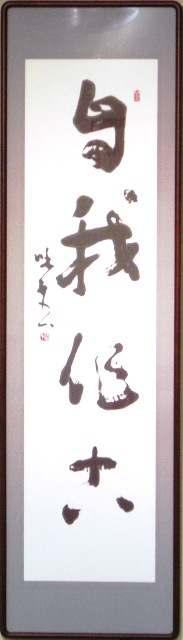 自我作古